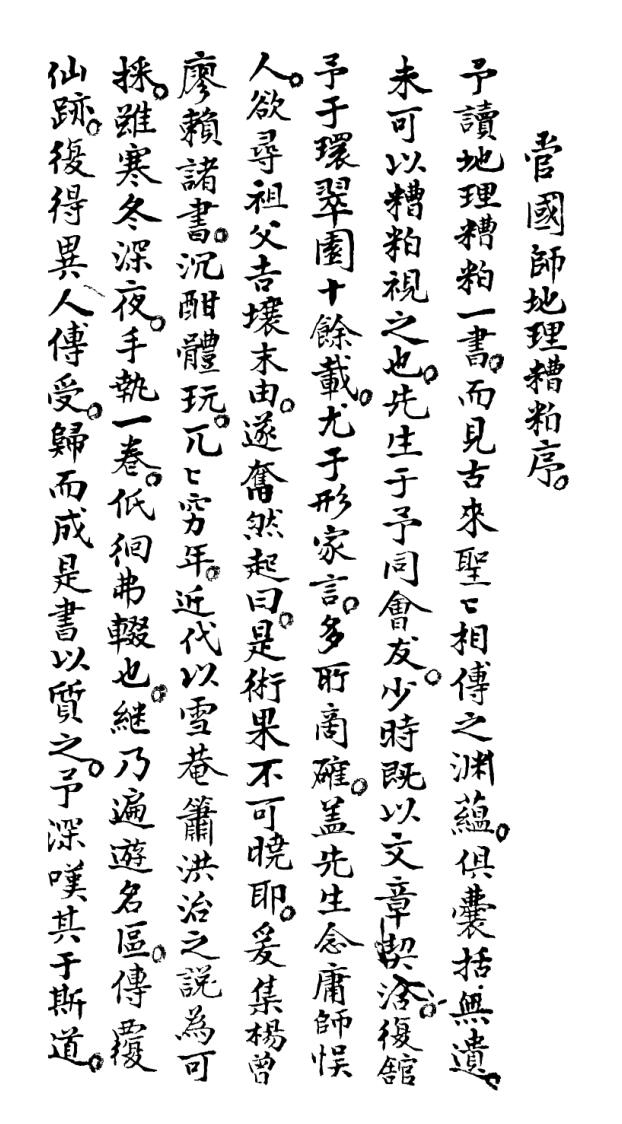 管國師地理糟粕序。
予讀地理糟粕一書。而見古來聖〻相傳之渊蘊。俱囊括無遺。
未可以糟粕視之也。先生于予同會友。少時既以文章契洽。復館
予于環翠園十餘載。尤于形家言。多所商確。盖先生念庸師悮
人。欲尋祖父吉壤末由。遂奮然起曰。是術果不可曉耶。爰集楊曾
廖賴諸書。沉酣體玩。兀〻穷年。近代以雪菴簫洪治之説為可
採。雖寒冬深夜。手執一巻。低徊弗輟也。継乃遍遊名區。傳覆
仙跡。復得異人傳受。歸而成是書以質之。予深嘆其于斯道。